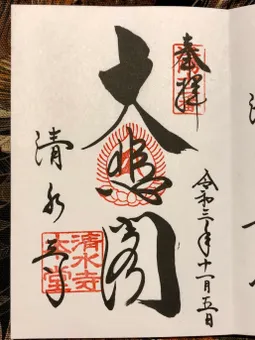 奉拝
令和三年十一月五日
大悲閣
清水寺
清水寺
本堂